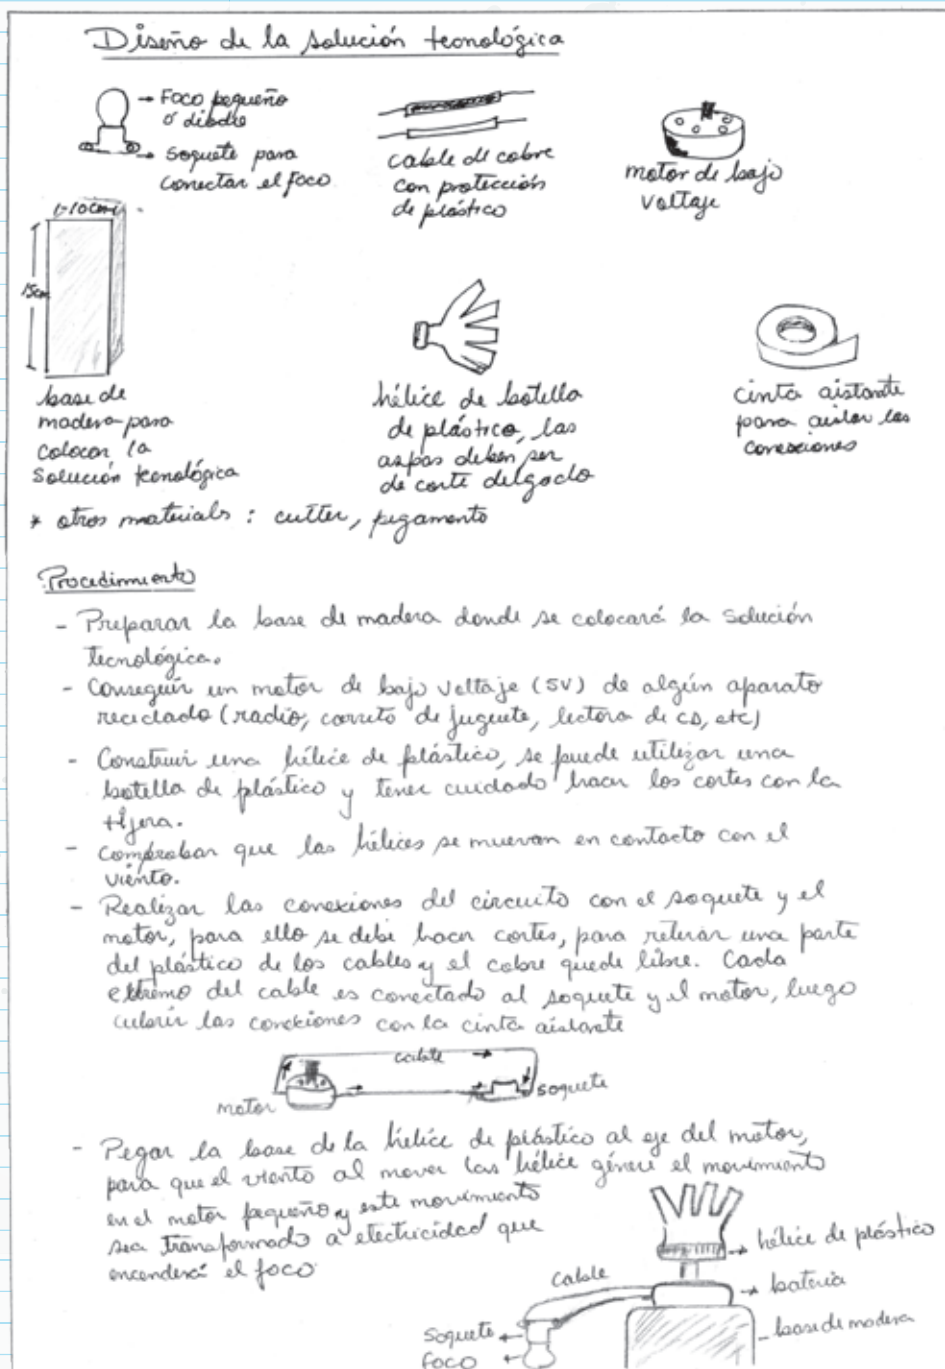 Diseño de la solución tecnológica
→ Foco pequeño
ó diodo
→ Soquete para
conectar el foco
cable de cobre
con protección
de plástico
motor de bajo
voltaje
1-10cm
15cm
base de
madera para
colocar la
solución tecnológica
hélice de botella
de plástico, las
aspas deben ser
de corte delgado
cinta aislante
para aislar las
conexiones
* otros materials : cutter, pegamento
Procedimiento
- Preparar la base de madera donde se colocará la solución
tecnológica.
- Conseguir un motor de bajo voltaje (5V) de algún aparato
reciclado (radio, carrito de juguete, lectora de CD, etc)
- Construir una hélice de plástico, se puede utilizar una
botella de plástico y tener cuidado hacer los cortes con la
tijera.
- Comprobar que las hélices se muevan en contacto con el
viento.
- Realizar las conexiones del circuito con el soquete y el
motor, para ello se debe hacer cortes, para retirar una parte
del plástico de los cables y el cobre quede libre. Cada
extremo del cable es conectado al soquete y el motor, luego
cubrir las conexiones con la cinta aislante
cable →
motor
soquete
- Pegar la base de la hélice de plástico al eje del motor,
para que el viento al mover las hélice génere el movimiento
en el motor pequeño y este movimiento
sea transformado a electricidad que
encenderá el foco
→ hélice de plástico
cable
→ bateria
base de madera
Soquete ←
foco ←